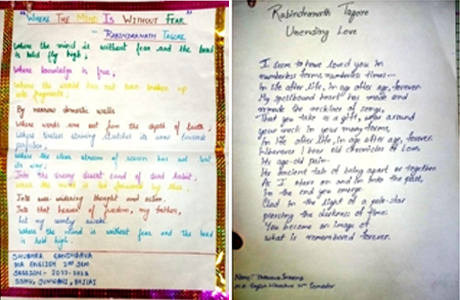 "WHERE THE MIND IS WITHOUT FEAR"
- RABINDRANATH TAGORE
Where the mind is without fear and the head
is held high;
Where knowledge is free;
Where the world has not been broken up
into fragments;
By narrow domestic walls
Where words come out from the depth of truth;
Where tireless striving stretches its arms towards
perfection;
Where the clear stream of reason has not lost
its way;
Into the dreary desert sand of dead habit;
Where the mind is led forward by thee
Into ever-widening thought and action.
Into that heaven of freedom, my father,
let my country awake.
Where the mind is without fear and the head
is held high.
MA ENGLISH 2nd SEM
SESSION - 2022-2023
Rabindranath Tagore
Unending Love
I seem to have loved you in
numberless forms, numberless times...
In life after life, in age after age, forever.
My spellbound heart has made and
remade the necklace of songs,
That you take as a gift, wear around
your neck in your many forms,
In life after life, in age after age, forever.
Whenever I hear old chronicles of love,
Its age-old pain,
Its ancient tale of being apart or together
As I stare on and on into the past,
In the end you emerge
Clad in the light of a pole-star
piercing the darkness of time:
You become an image of
what is remembered forever.
Name: